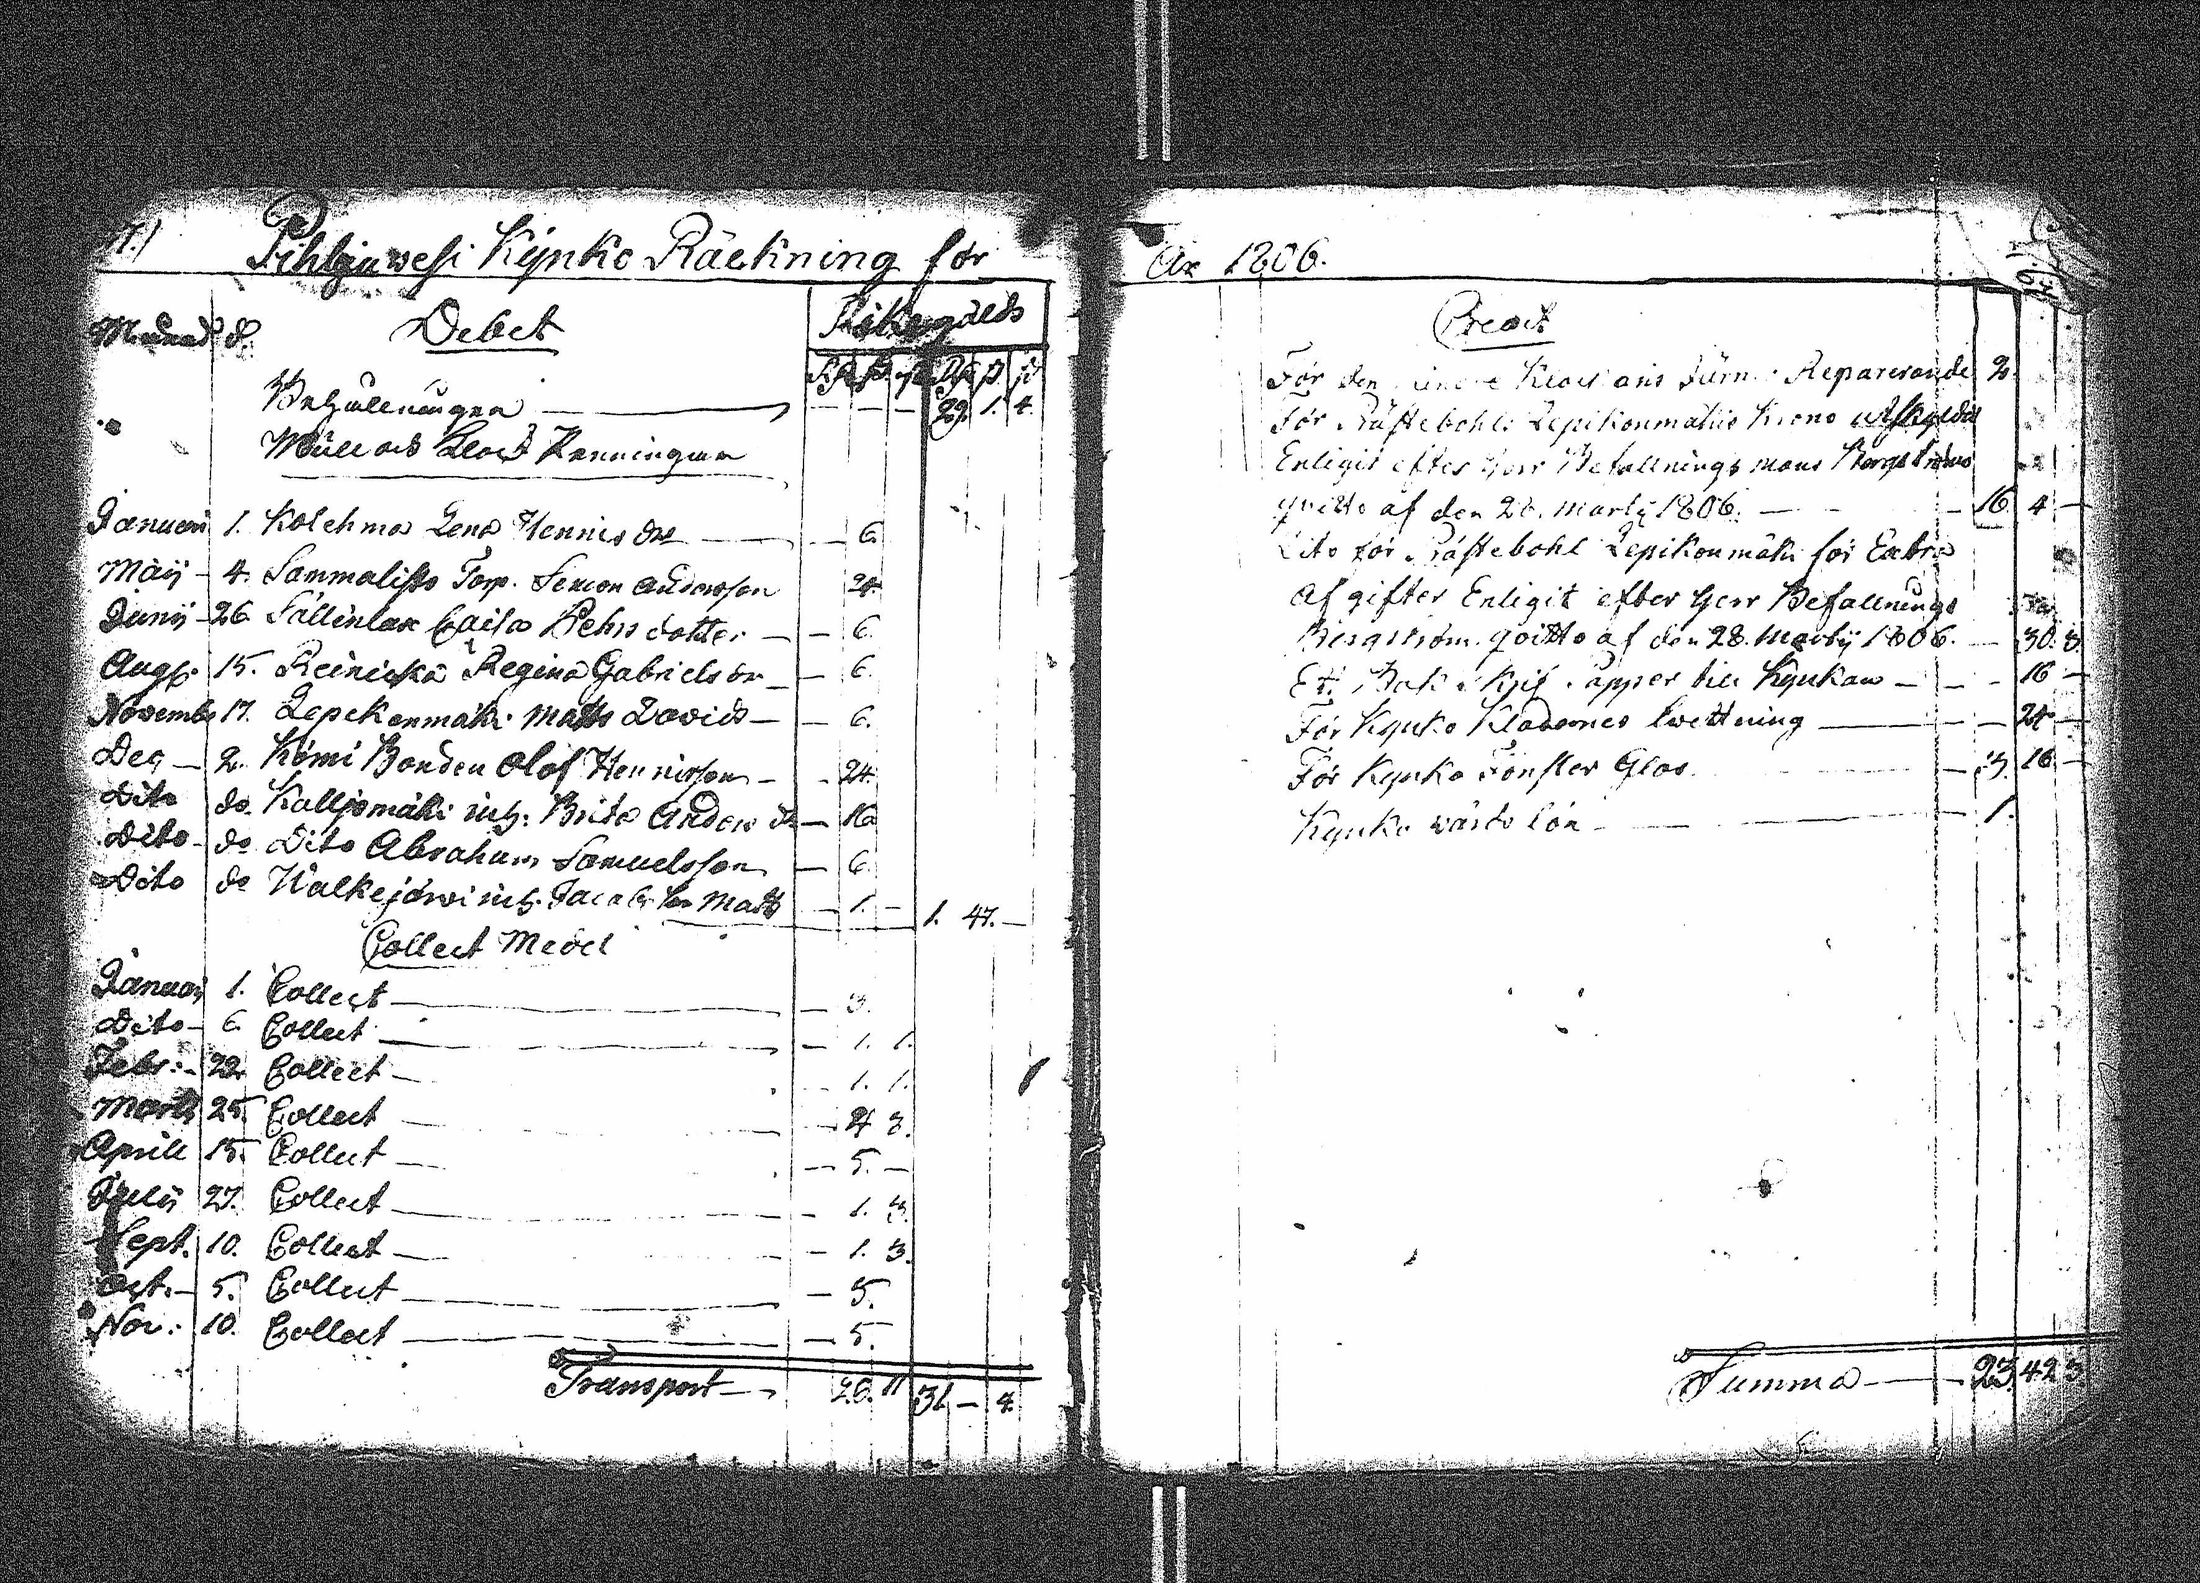 Pihlgawesi Kÿrko Räckning for
Månad d. Debet Riksgälds
Behållningen 29. 1. 4.
Mull och Klock Penningar
Januari 1. Kolehma Lena Hennis dr 6.
Maÿ 4. Sammalisto Torp. Simon Andersson 24.
Junÿ 26. Caisa Pehrs dotter 6.
Aug. 15. Reinicka Regina Gabriels dr 6.
Novemb 17. Lepekonmäki Matts Davids 6.
Dec 2. Kömi Bonden Olof Hennisson 24.
Dito do. Kalljomäki inh. Brita Anders dr 16
Dito do Dito Abraham Samuelsson 6.
Dito do Walkejärwi inh. Jacob Matts 1. 1. 47.
Collect Medel
Januarj 1. Collect 3.
Dito 6. Collect 1. 1.
Febr: 22. Collect 1. 1.
Martij 25. Collect 4 3.
Aprill 15. Collect 5.
Julÿ 27. Collect 1. 3.
Sept. 10. Collect 1. 3.
Oct. 5. Collect 5.
Nov: 10. Collect 5.
Transport 26. 11 31 4.
År 1806.
Credit
För den Klockans Reparerande 2.
För Lepikonmäkis Krono Utskylder
Enligit efter Herr Befallnings mans Bergströms
qvitto af den 28. Martij 1806. 16 4
Dito för Lepikonmäki för Extra
Af gifter Enligit efter Herr Befallnings
Bergström. qvitto af den 28. Martij 1806. 30. 3.
Papper till Kyrkan 16
För Kyrko Klädernes twettning 24
För Kyrko Fönster Glas 3. 16
Kyrko wärds lön 1.
Summa 23. 42 3